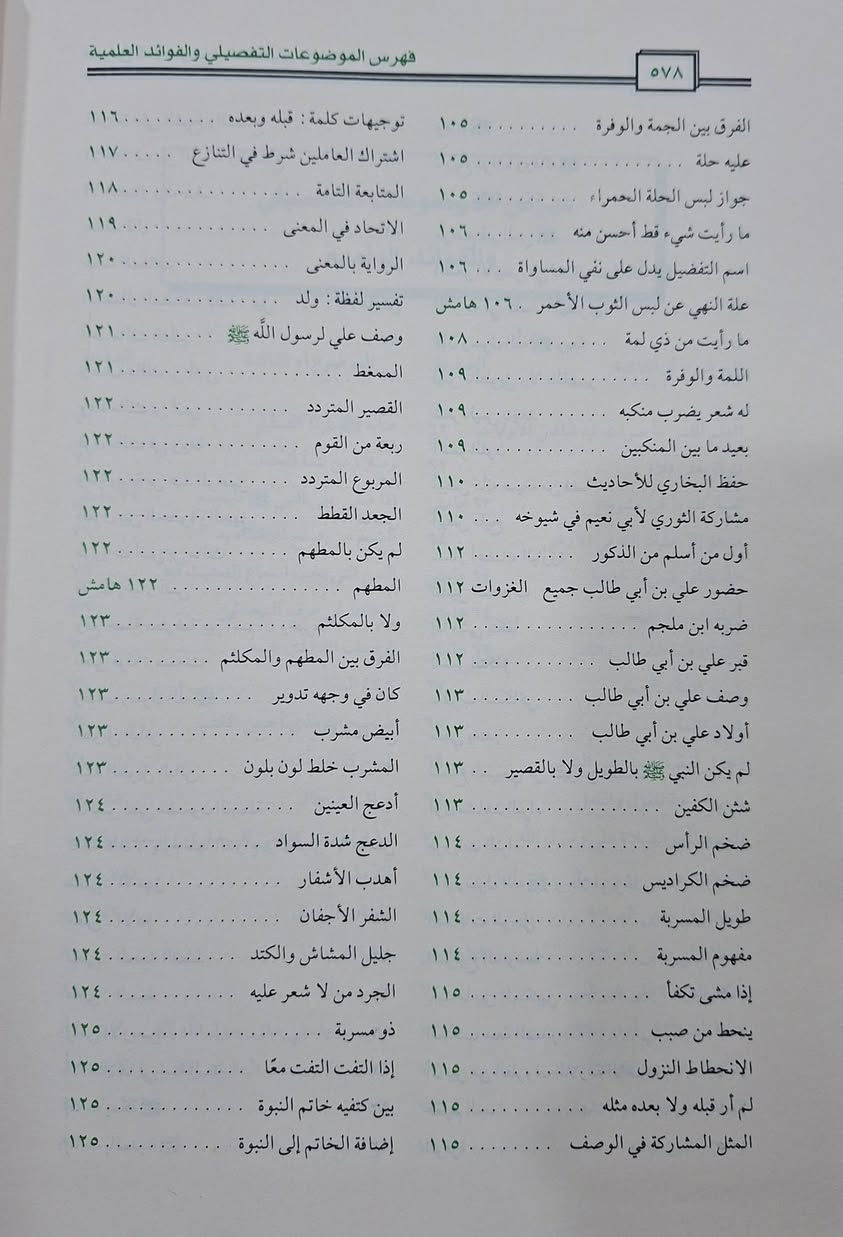 فهرس الموضوعات التفصيلي والفوائد العلمية
٥٧٨
الفرق بين الجمة والوفرة . . . . . . . . . . ١٠٥
عليه حلة . . . . . . . . . . . . . . . . . . . ١٠٥
جواز لبس الحلة الحمراء . . . . . . . . . . ١٠٥
ما رأيت شيء قط أحسن منه . . . . . . . . ١٠٦
اسم التفضيل يدل على نفي المساواة . . . ١٠٦
علة النهي عن لبس الثوب الأحمر . ١٠٦ هامش
ما رأيت من ذي لمة . . . . . . . . . . . . . ١٠٨
اللمة والوفرة . . . . . . . . . . . . . . . . ١٠٩
له شعر يضرب منكبه . . . . . . . . . . . . ١٠٩
بعيد ما بين المنكبين . . . . . . . . . . . . . ١٠٩
حفظ البخاري للأحاديث . . . . . . . . . . ١١٠
مشاركة الثوري لأبي نعيم في شيوخه . . . ١١٠
أول من أسلم من الذكور . . . . . . . . . . ١١٢
حضور علي بن أبي طالب جميع الغزوات ١١٢
ضربه ابن ملجم . . . . . . . . . . . . . . . ١١٢
قبر علي بن أبي طالب . . . . . . . . . . . . ١١٢
وصف علي بن أبي طالب . . . . . . . . . . ١١٣
أولاد علي بن أبي طالب . . . . . . . . . . ١١٣
لم يكن النبي ﷺ بالطويل ولا بالقصير . . ١١٣
شثن الكفين . . . . . . . . . . . . . . . . . ١١٣
ضخم الرأس . . . . . . . . . . . . . . . . ١١٤
ضخم الكراديس . . . . . . . . . . . . . . ١١٤
طويل المسربة . . . . . . . . . . . . . . . ١١٤
مفهوم المسربة . . . . . . . . . . . . . . . ١١٤
إذا مشى تكفأ . . . . . . . . . . . . . . . . ١١٥
ينحط من صبب . . . . . . . . . . . . . . . ١١٥
الانحطاط النزول . . . . . . . . . . . . . . ١١٥
لم أر قبله ولا بعده مثله . . . . . . . . . . . ١١٥
المثل المشاركة في الوصف . . . . . . . . ١١٥
توجيهات كلمة : قبله وبعده . . . . . . . . . ١١٦
اشتراك العاملين شرط في التنازع . . . . . ١١٧
المتابعة التامة . . . . . . . . . . . . . . . . ١١٨
الاتحاد في المعنى . . . . . . . . . . . . . . ١١٩
الرواية بالمعنى . . . . . . . . . . . . . . . ١٢٠
تفسير لفظة : ولد . . . . . . . . . . . . . . ١٢٠
وصف علي لرسول اللَّه ﷺ . . . . . . . . . ١٢١
الممغط . . . . . . . . . . . . . . . . . . . ١٢١
القصير المتردد . . . . . . . . . . . . . . . ١٢٢
ربعة من القوم . . . . . . . . . . . . . . . . ١٢٢
المربوع المتردد . . . . . . . . . . . . . . . ١٢٢
الجعد القطط . . . . . . . . . . . . . . . . ١٢٢
لم يكن بالمطهم . . . . . . . . . . . . . . . ١٢٢
المطهم . . . . . . . . . . . . . . . ١٢٢ هامش
ولا بالمكلثم . . . . . . . . . . . . . . . . ١٢٣
الفرق بين المطهم والمكلثم . . . . . . . . . ١٢٣
كان في وجهه تدوير . . . . . . . . . . . . . ١٢٣
أبيض مشرب . . . . . . . . . . . . . . . . ١٢٣
المشرب خلط لون بلون . . . . . . . . . . . ١٢٣
أدعج العينين . . . . . . . . . . . . . . . . ١٢٤
الدعج شدة السواد . . . . . . . . . . . . . ١٢٤
أهدب الأشفار . . . . . . . . . . . . . . . ١٢٤
الشفر الأجفان . . . . . . . . . . . . . . . ١٢٤
جليل المشاش والكتد . . . . . . . . . . . . ١٢٤
الجرد من لا شعر عليه . . . . . . . . . . . . ١٢٤
ذو مسربة . . . . . . . . . . . . . . . . . . ١٢٥
إذا التفت التفت معًا . . . . . . . . . . . . . ١٢٥
بين كتفيه خاتم النبوة . . . . . . . . . . . . ١٢٥
إضافة الخاتم إلى النبوة . . . . . . . . . . . ١٢٥